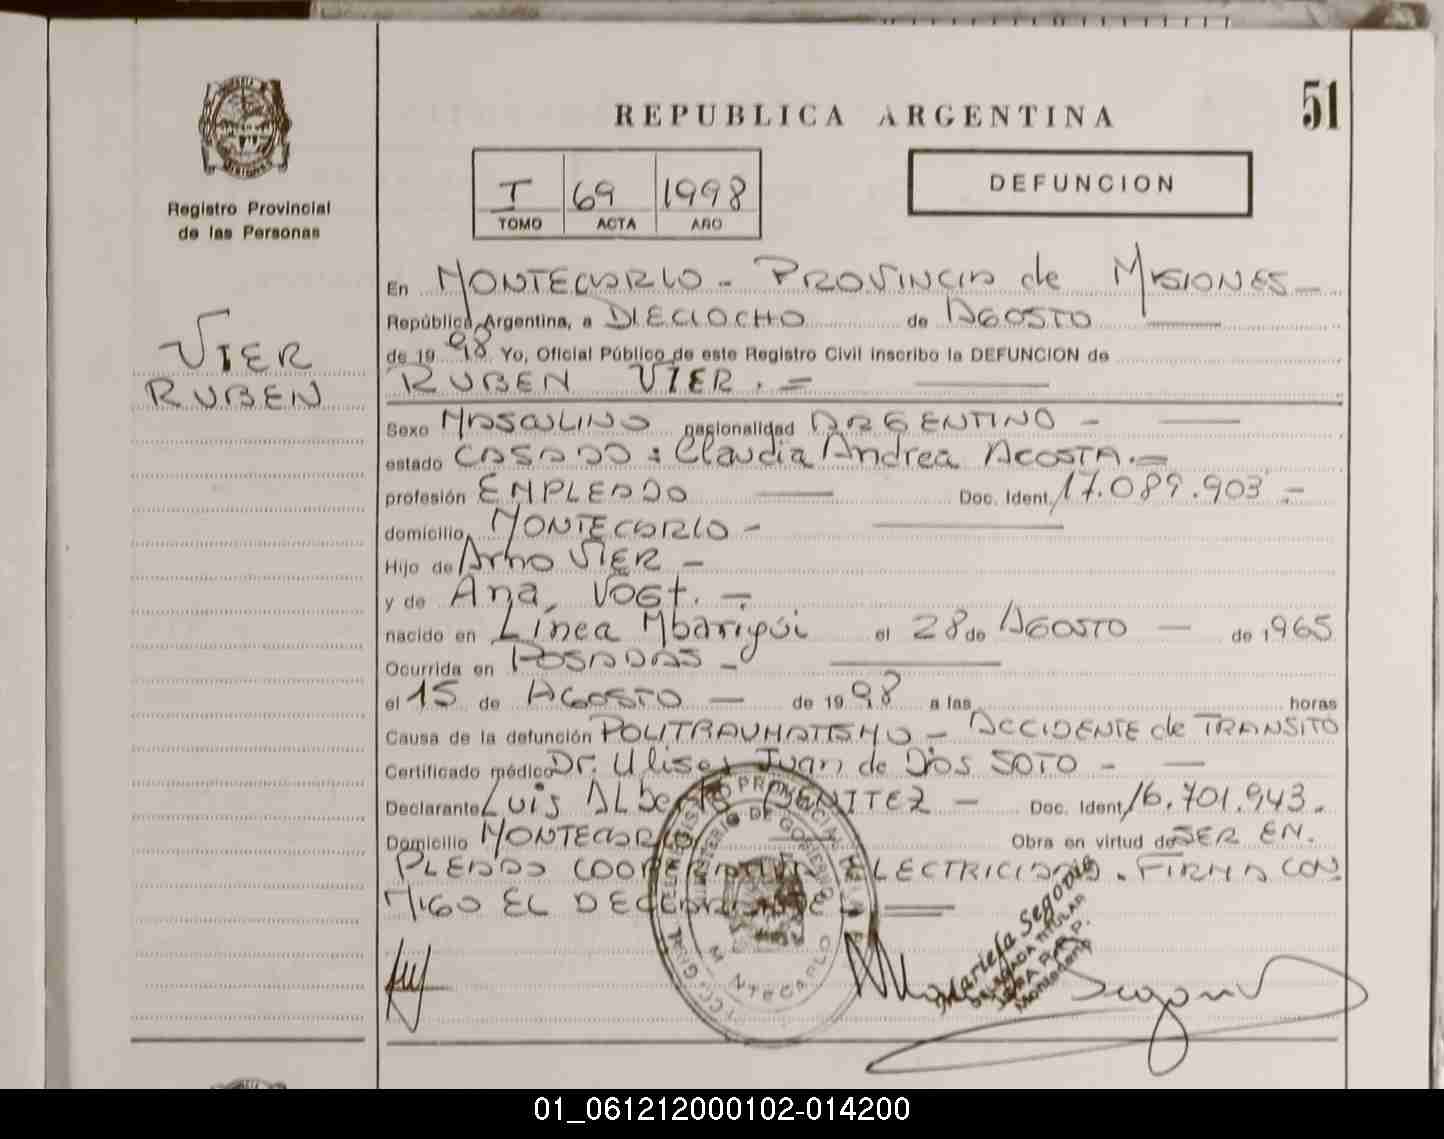 REPUBLICA ARGENTINA
51
MISIONES
Registro Provincial
de las Personas
I 69 1998
TOMO ACTA AÑO
DEFUNCION
VIER
RUBEN
En MONTECARLO - PROVINCIA de MISIONES -
República Argentina, a DIECIOCHO de AGOSTO
de 19 98 Yo, Oficial Público de este Registro Civil inscribo la DEFUNCION de
RUBEN VIER. =
Sexo MASCULINO nacionalidad ARGENTINO -
estado CASADO : Claudia Andrea ACOSTA. =
profesión EMPLEADO Doc. Ident. 17.089.903 -
domicilio MONTECARLO -
Hijo de Arno VIER -
y de Ana VOGT. -
nacido en Línea Mbarigüi el 28 de AGOSTO - de 1965
Ocurrida en POSADAS -
el 15 de AGOSTO - de 19 98 a las horas
Causa de la defunción POLITRAUMATISMO - ACCIDENTE de TRANSITO
Certificado médico Dr. Ulises Juan de Dios SOTO -
Declarante Luis ALBerto BENITEZ - Doc. Ident. 16.701.943.
Domicilio MONTECARLO Obra en virtud de SER EM.
PLEADO COOPERATIVA ELECTRICIDAD. FIRMA CON
MIGO EL DECLARANTE
REGISTRO PROVINCIAL
MINISTERIO DE GOBIERNO
MONTECARLO
Mariela Segovia
DELEGADA TITULAR
Montecarlo
01_061212000102-014200